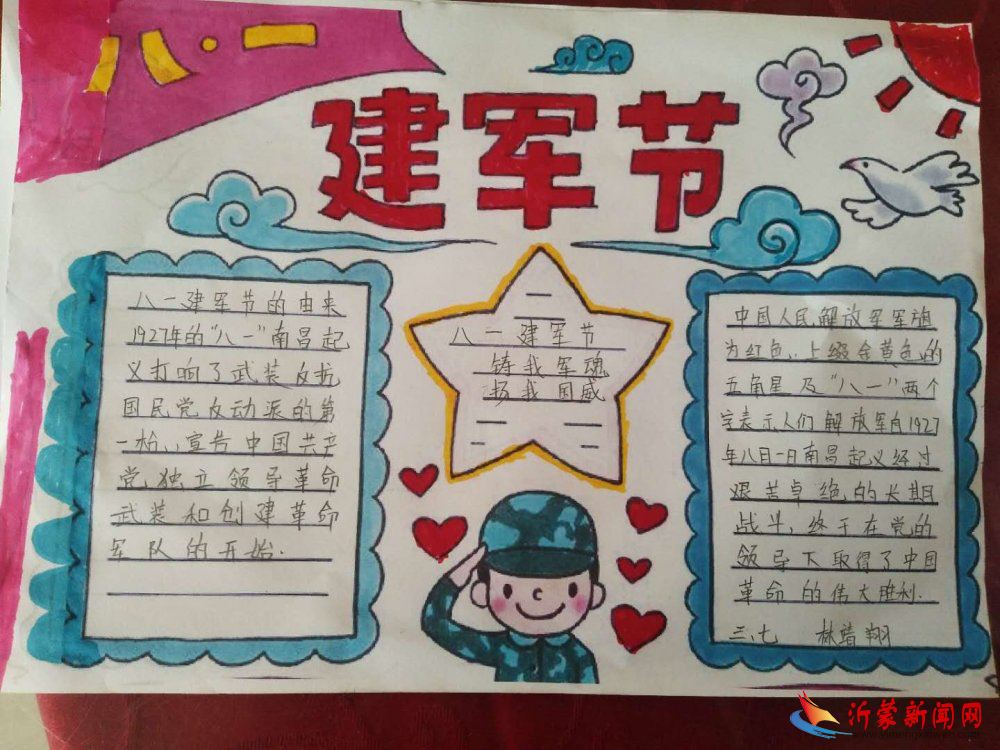 八·一
建军节
八一建军节的由来
1927年的“八一”南昌起
义打响了武装反抗
国民党反动派的第
一枪，宣告中国共产
党独立领导革命
武装和创建革命
军队的开始.
八一建军节
铸我军魂
扬我国威
中国人民解放军军旗
为红色，上缀金黄色的
五角星及“八一”两个
字表示人们解放军自1927
年八日一日南昌起义经过
艰苦卓绝的长期
战斗，终于在党的
领导下取得了中国
革命的伟大胜利.
三、七 林靖翔
沂蒙新闻网